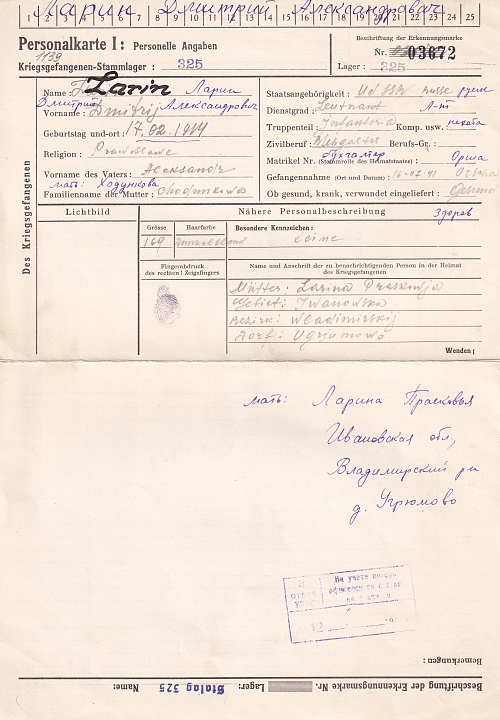 Ларин Дмитрий Александрович
1 2 3 4 5 6 7 8 9 10 11 12 13 14 15 16 17 18 19 20 21 22 23 24 25
Personalkarte I: Personelle Angaben
1139
Kriegsgefangenen-Stammlager : 325
Beschriftung der Erkennungsmarke
Nr. 03672
Lager : 325
Des Kriegsgefangenen
Name : Larin Ларин
Дмитрий Александрович
Vorname : Dmitrij
Geburtstag und -ort : 17.02.1914
Religion :
Vorname des Vaters : Alexander
мать: Ходункова
Familienname der Mutter :
Staatsangehörigkeit : UdSSR Russe русск
Dienstgrad : Leutnant Л-т
Truppenteil : Infanterie Komp. usw. : пехота
Zivilberuf : Berufs-Gr. :
бухгалтер
Matrikel Nr. (Stammrolle des Heimatstaates) : Орша
Gefangennahme (Ort und Datum) : 16.07.41 Orscha
Ob gesund, krank, verwundet eingeliefert : Gesund
здоров
Lichtbild
Nähere Personalbeschreibung
Grösse Haarfarbe Besondere Kennzeichen :
169 Dunkelblond Keine
Fingerabdruck
des rechten ! Zeigefingers
Name und Anschrift der zu benachrichtigenden Person in der Heimat
des Kriegsgefangenen
Mutter: Larina Praskowja
Gebiet: Iwanowska
Bezirk: Wladimirskij
Dorf: Ugrumowo
Wenden !
мать: Ларина Прасковья
Ивановская обл.,
Владимирский рн
д. Угрюмово
На учете
Bemerkungen :
Beschriftung der Erkennungsmarke Nr.
Lager: Stalag 325
Name: